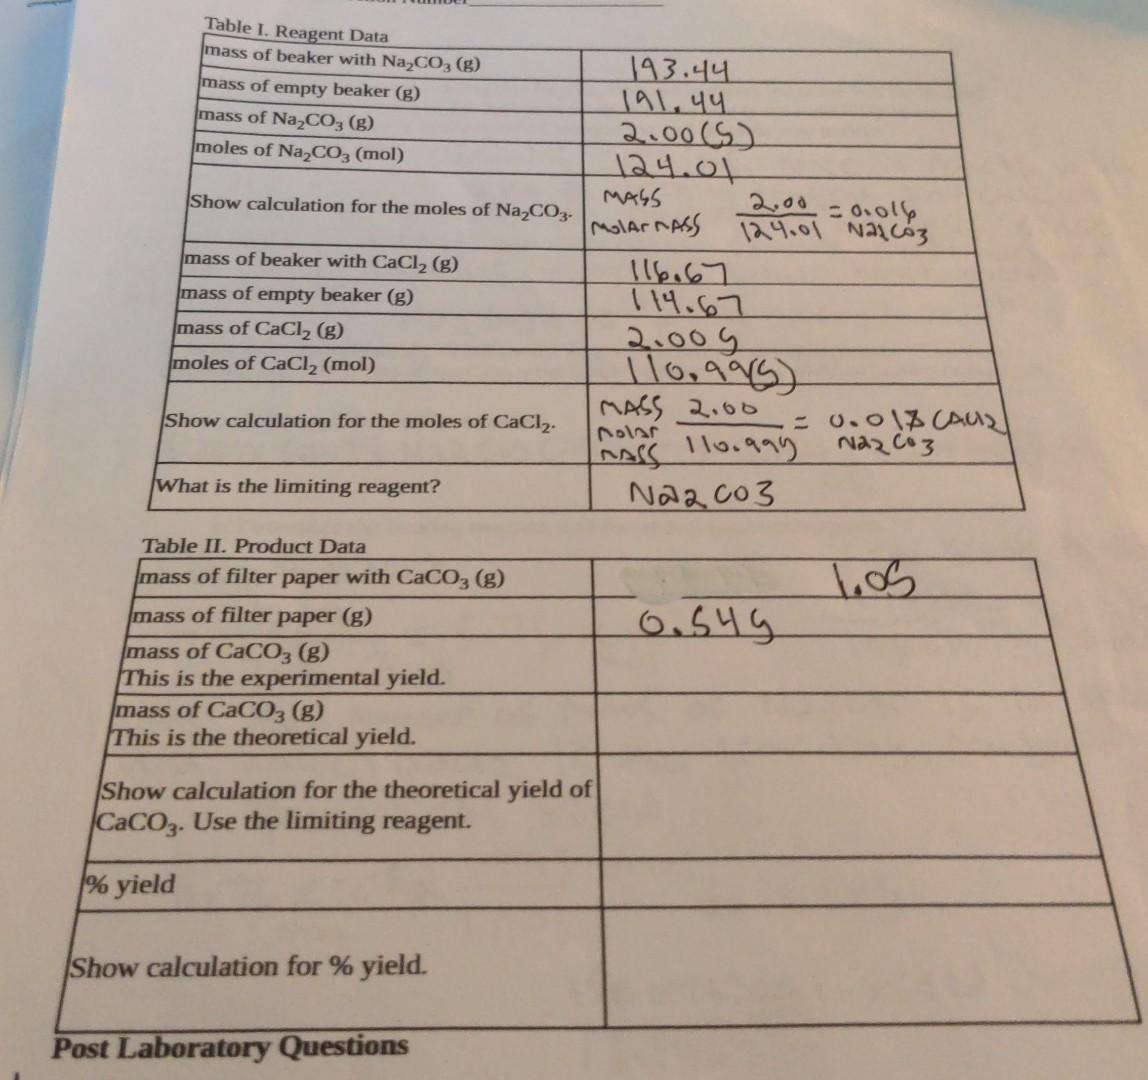 Table I. Reagent Data
mass of beaker with Na₂CO₃ (g) 193.44
mass of empty beaker (g) 191.44
mass of Na₂CO₃ (g) 2.00(g)
moles of Na₂CO₃ (mol) 124.01
Show calculation for the moles of Na₂CO₃. MASS MOlAr MASS 2.00 / 124.01 = 0.016 Na2CO3
mass of beaker with CaCl₂ (g) 116.67
mass of empty beaker (g) 114.67
mass of CaCl₂ (g) 2.00g
moles of CaCl₂ (mol) 110.99(g)
Show calculation for the moles of CaCl₂. MASS molar MASS 2.00 / 110.99g = 0.018 CACl2 Na2CO3
What is the limiting reagent? Na2CO3
Table II. Product Data
mass of filter paper with CaCO₃ (g)
mass of filter paper (g) 0.54g
mass of CaCO₃ (g)
This is the experimental yield.
mass of CaCO₃ (g)
This is the theoretical yield.
Show calculation for the theoretical yield of
CaCO₃. Use the limiting reagent.
% yield
Show calculation for % yield.
Post Laboratory Questions